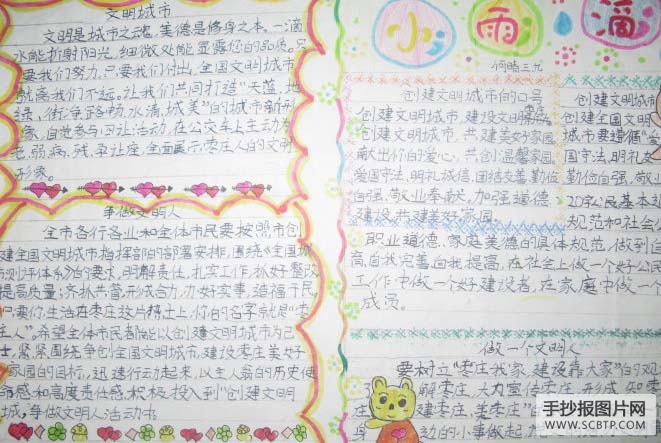 文明城市
文明是城市之魂,美德是修身之本。一滴
水能折射阳光,细微处能显露您的品质。只
要我们努力,只要我们付出,全国文明城市
就离我们不远。让我们共同打造"天蓝、地
绿、街净、路畅、水清、城美"的城市新形
象,自觉参与四让活动,在公交车上主动为
老、弱、病、残、孕让座,全面展示枣庄人的文明
形象。
争做文明人
全市各行各业和全体市民要按照市创
建全国文明城市指挥部的部署安排,围绕《全国城
市测评体系》的要求,明解责任,扎实工作,抓好整改
提高质量,齐抓共管,形成合力,办好实事,造福市民。
只要你生活在枣庄这片精土上,你的名字就是"枣
庄人"。希望全体市民都能以创建文明城市为己
任,紧紧围绕争创全国文明城市,建设枣庄美好
家园的目标,迅速行动起来,以主人翁的历史使
命感和高度责任感,积极投入到"创建文明
城,争做文明人活动中
小雨滴
创建文明城市的口号
创建文明城市,建设文明枣庄
创建文明城市,共建美好家园
献出你的爱心,共创温馨家园
爱国守法,明礼诚信,团结友善,勤俭
自强,敬业奉献。加强道德
建设,共建美好家园。
创建文明城
创建全国文明
城市要遵循"爱
国守法,明礼友
勤俭自强,敬业
20字公民基本道
规范和社会公
职业道德、家庭美德的具体规范,做到自
高,自我完善,自我提高,在社会上做一个好公民
工作中做一个好建设者,在家庭中做一个
成员。
做一个文明人
要树立"枣庄我家,建设靠大家"的观
解枣庄,大力宣传枣庄,形成知枣
庄 建枣庄,美枣庄"
身 动的小事做起
手抄报图片网
WWW.SCBTP.COM